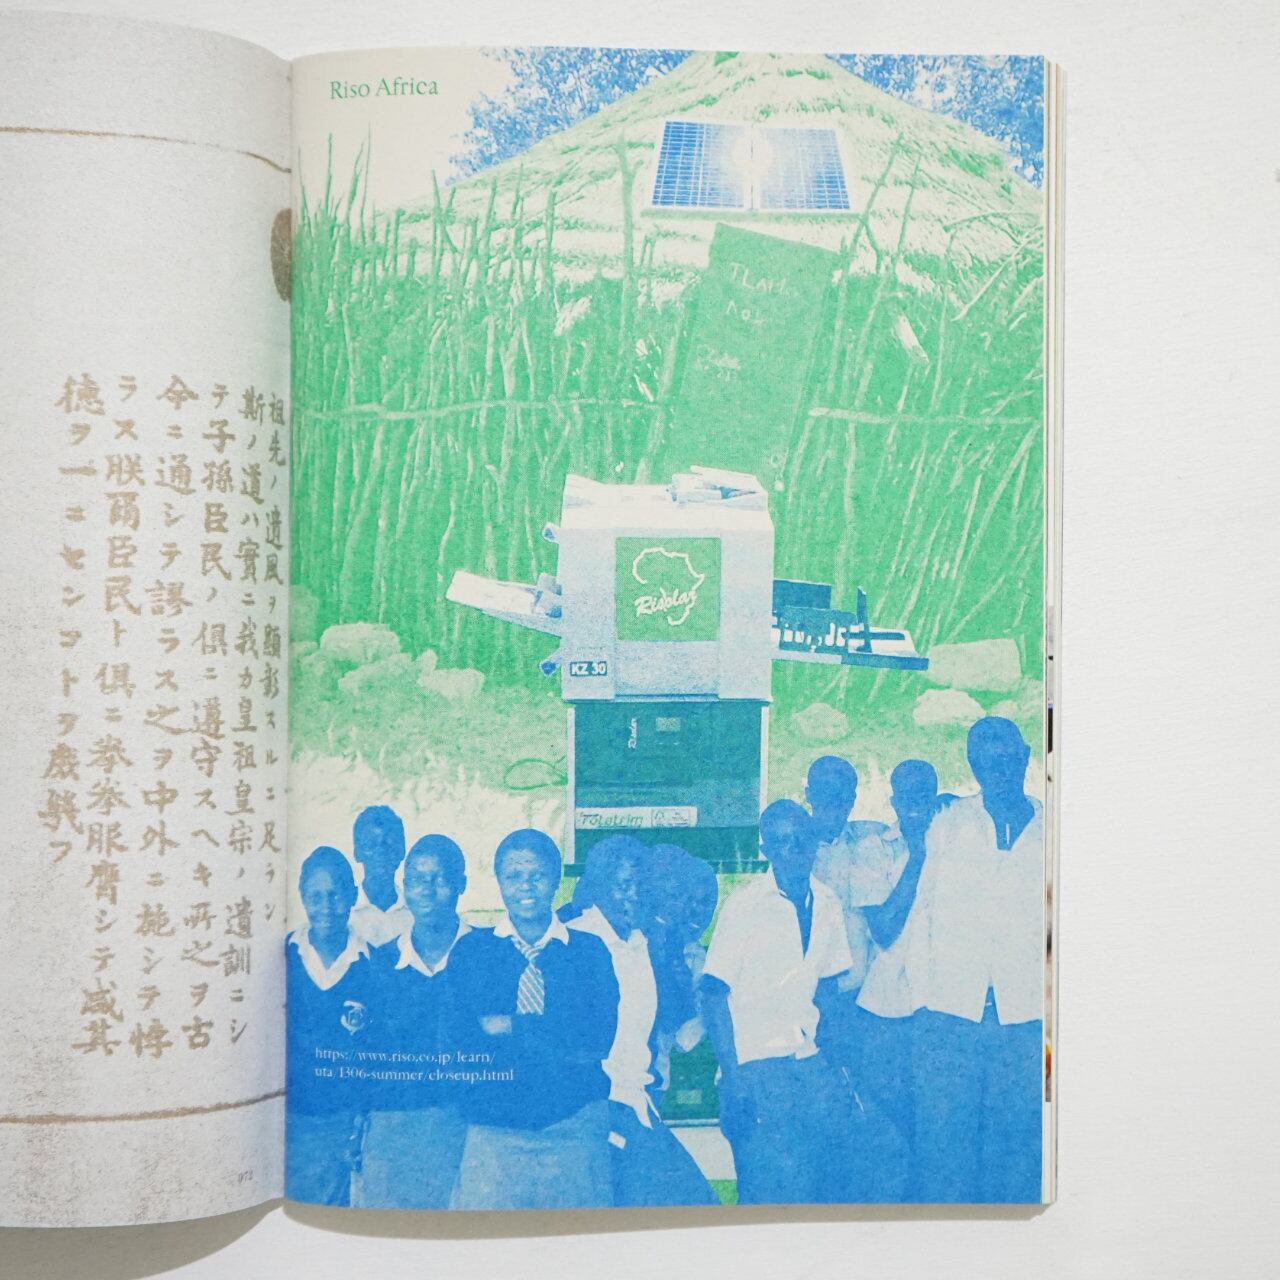 祖先ノ遺風ヲ顯彰スルニ足ラン
斯ノ道ハ實ニ我カ皇祖皇宗ノ遺訓ニシ
テ子孫臣民ノ俱ニ遵守スヘキ所之ヲ古
今ニ通シテ謬ラス之ヲ中外ニ施シテ悖
ラス朕爾臣民ト俱ニ拳拳服膺シテ咸其
德ヲ一ニセンコトヲ庶幾フ
Riso Africa
Risolar
KZ 30
https://www.riso.co.jp/learn/
uta/1306-summer/closeup.html